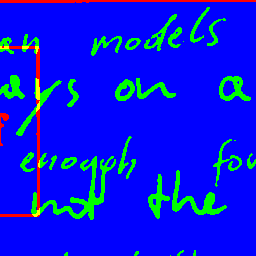 an models
ays on a
enough fou
not the